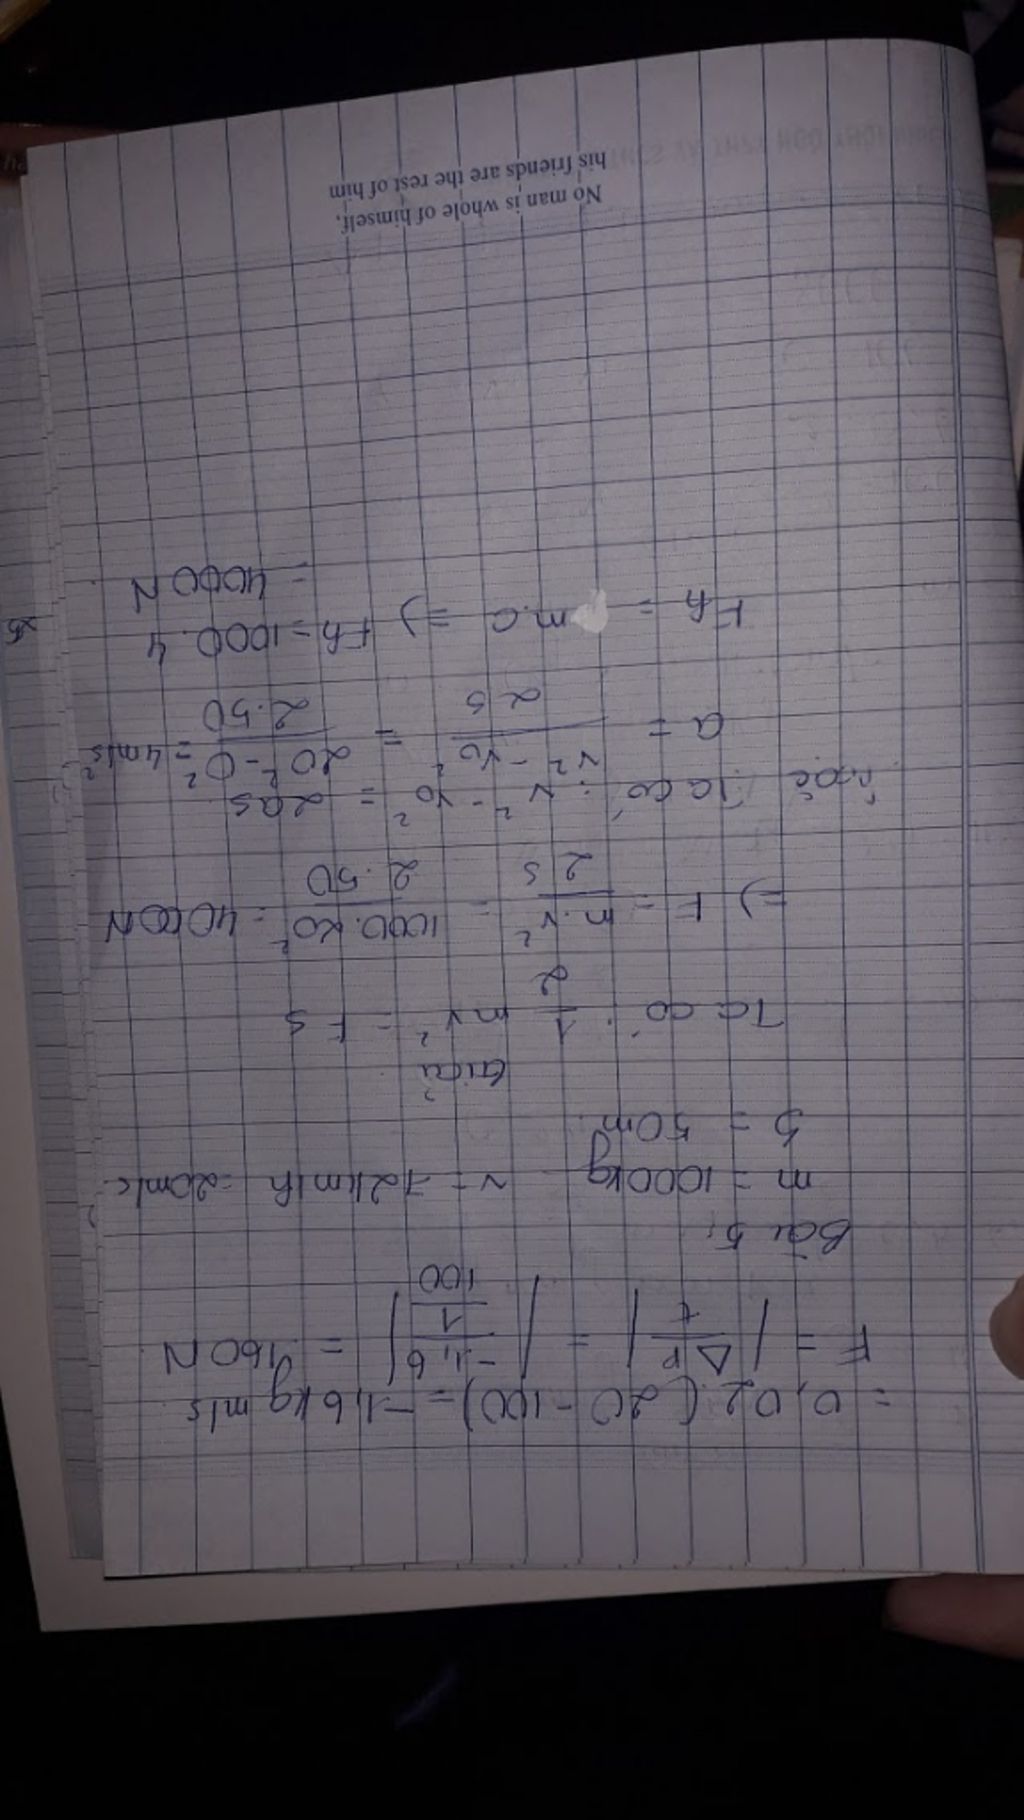 = 0,02 (20 - 100) = -1,6 kg m/s
F = |ΔP / t| = |-1,6 / (1/100)| = 160 N
Bài 5:
m = 1000kg v = 72km/h = 20m/s
s = 50m
Giải
Ta có: 1/2 mv² = Fs
=> F = m.v² / 2s = 1000.20² / 2.50 = 4000N
hoặc Ta có: v² - v₀² = 2as
a = v² - v₀² / 2s = 20² - 0² / 2.50 = 4m/s²
Fh = m.a => Fh = 1000.4
= 4000N
No man is whole of himself,
his friends are the rest of him